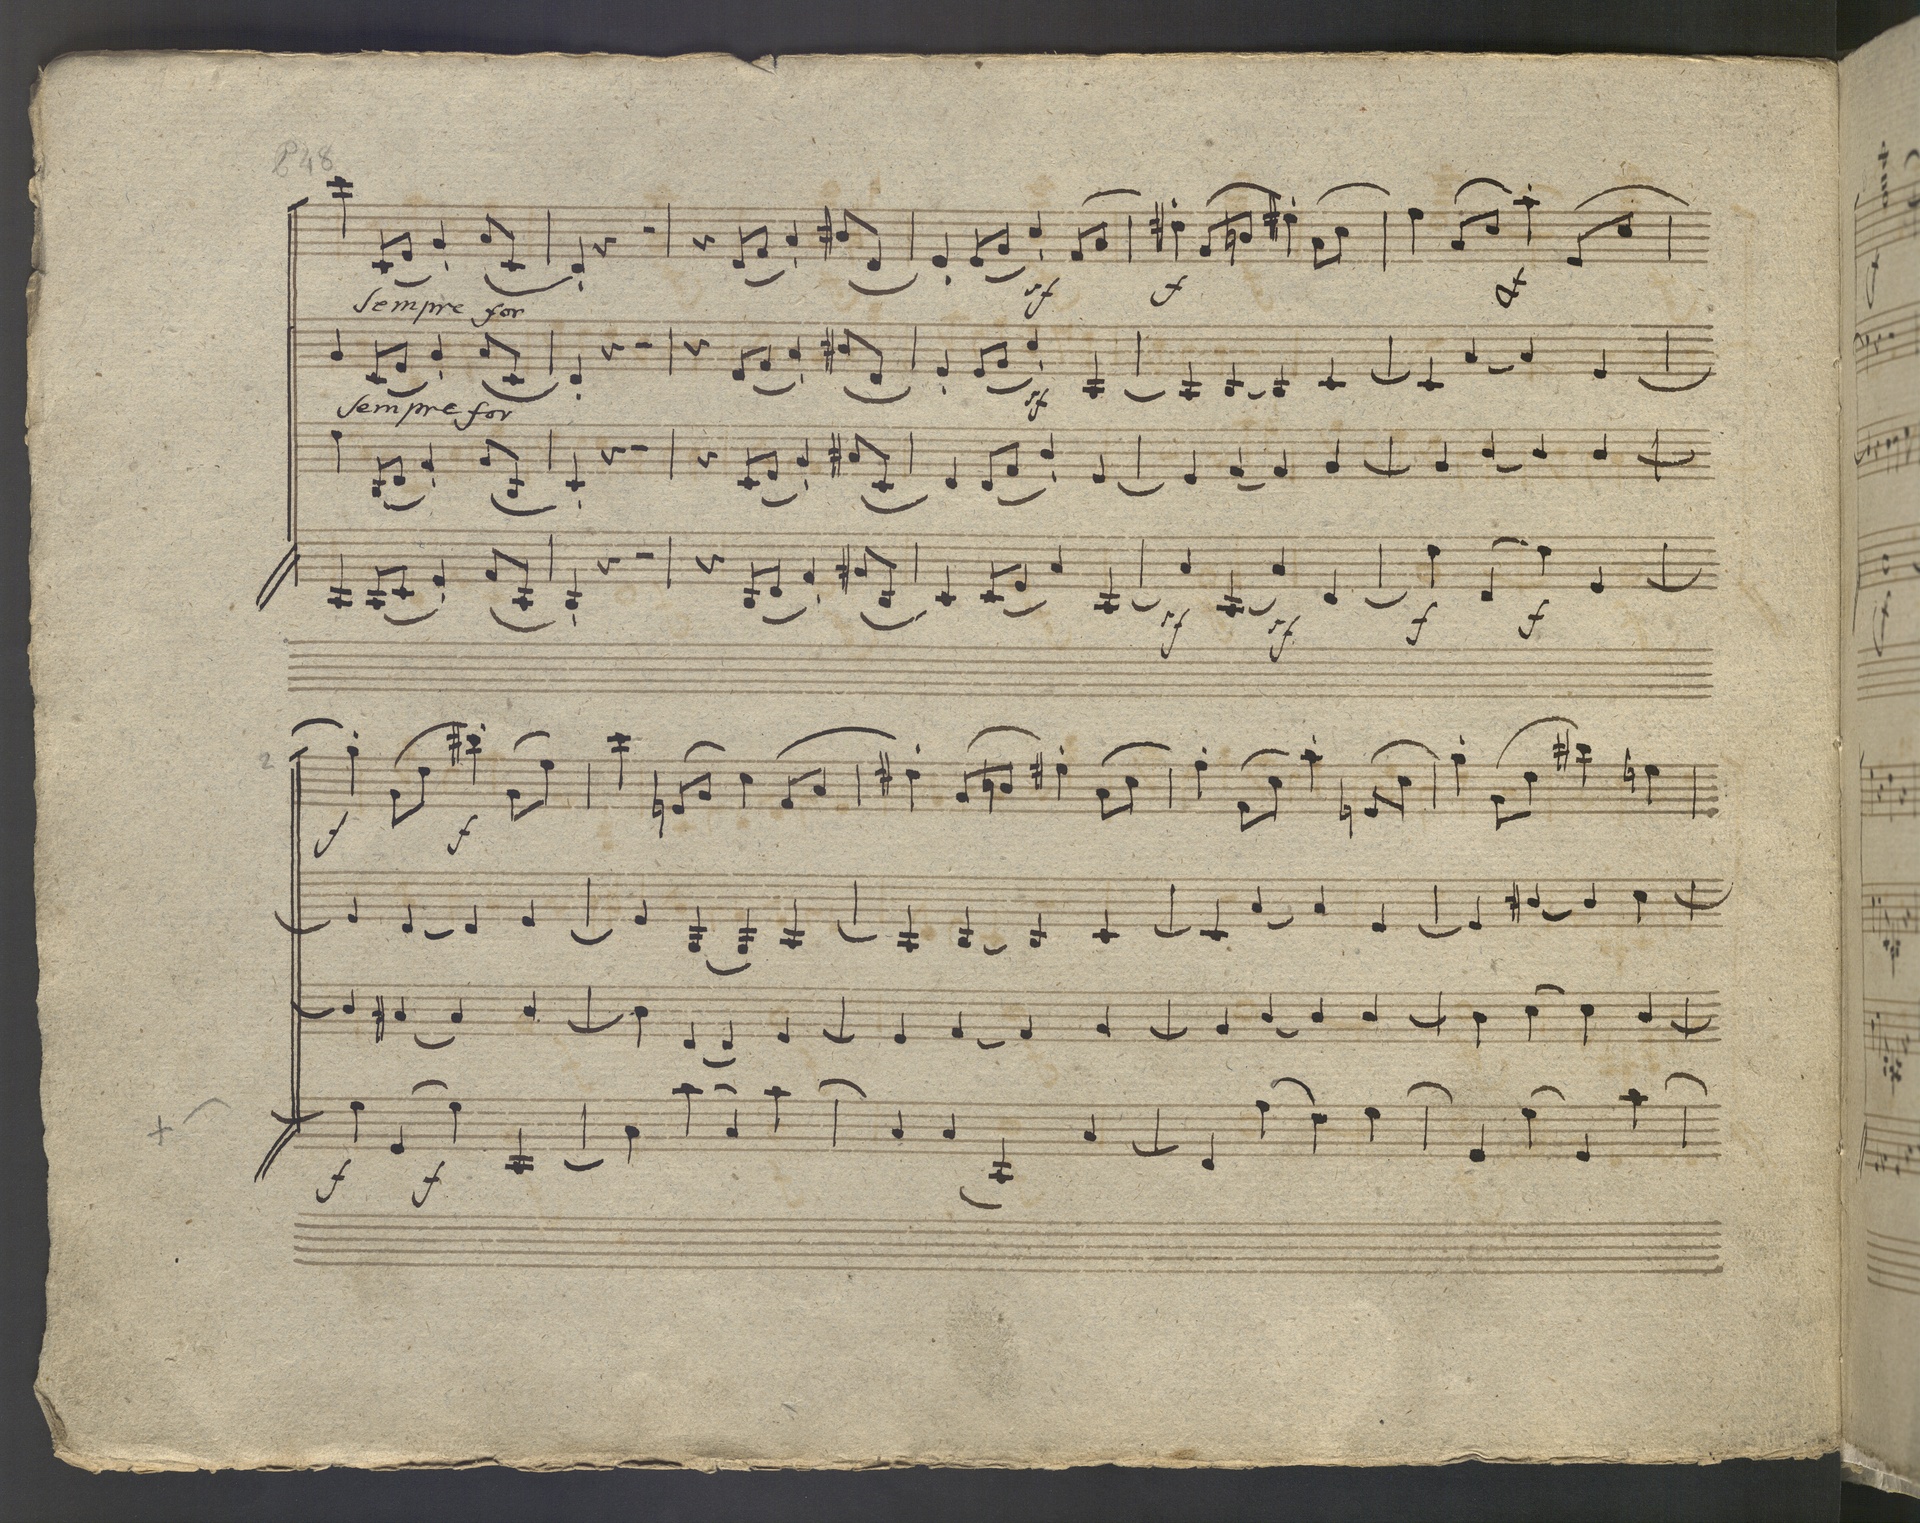 P48
Sempre for
sf f f
Sempre for
sf
sf sf f f
2
f f
f f